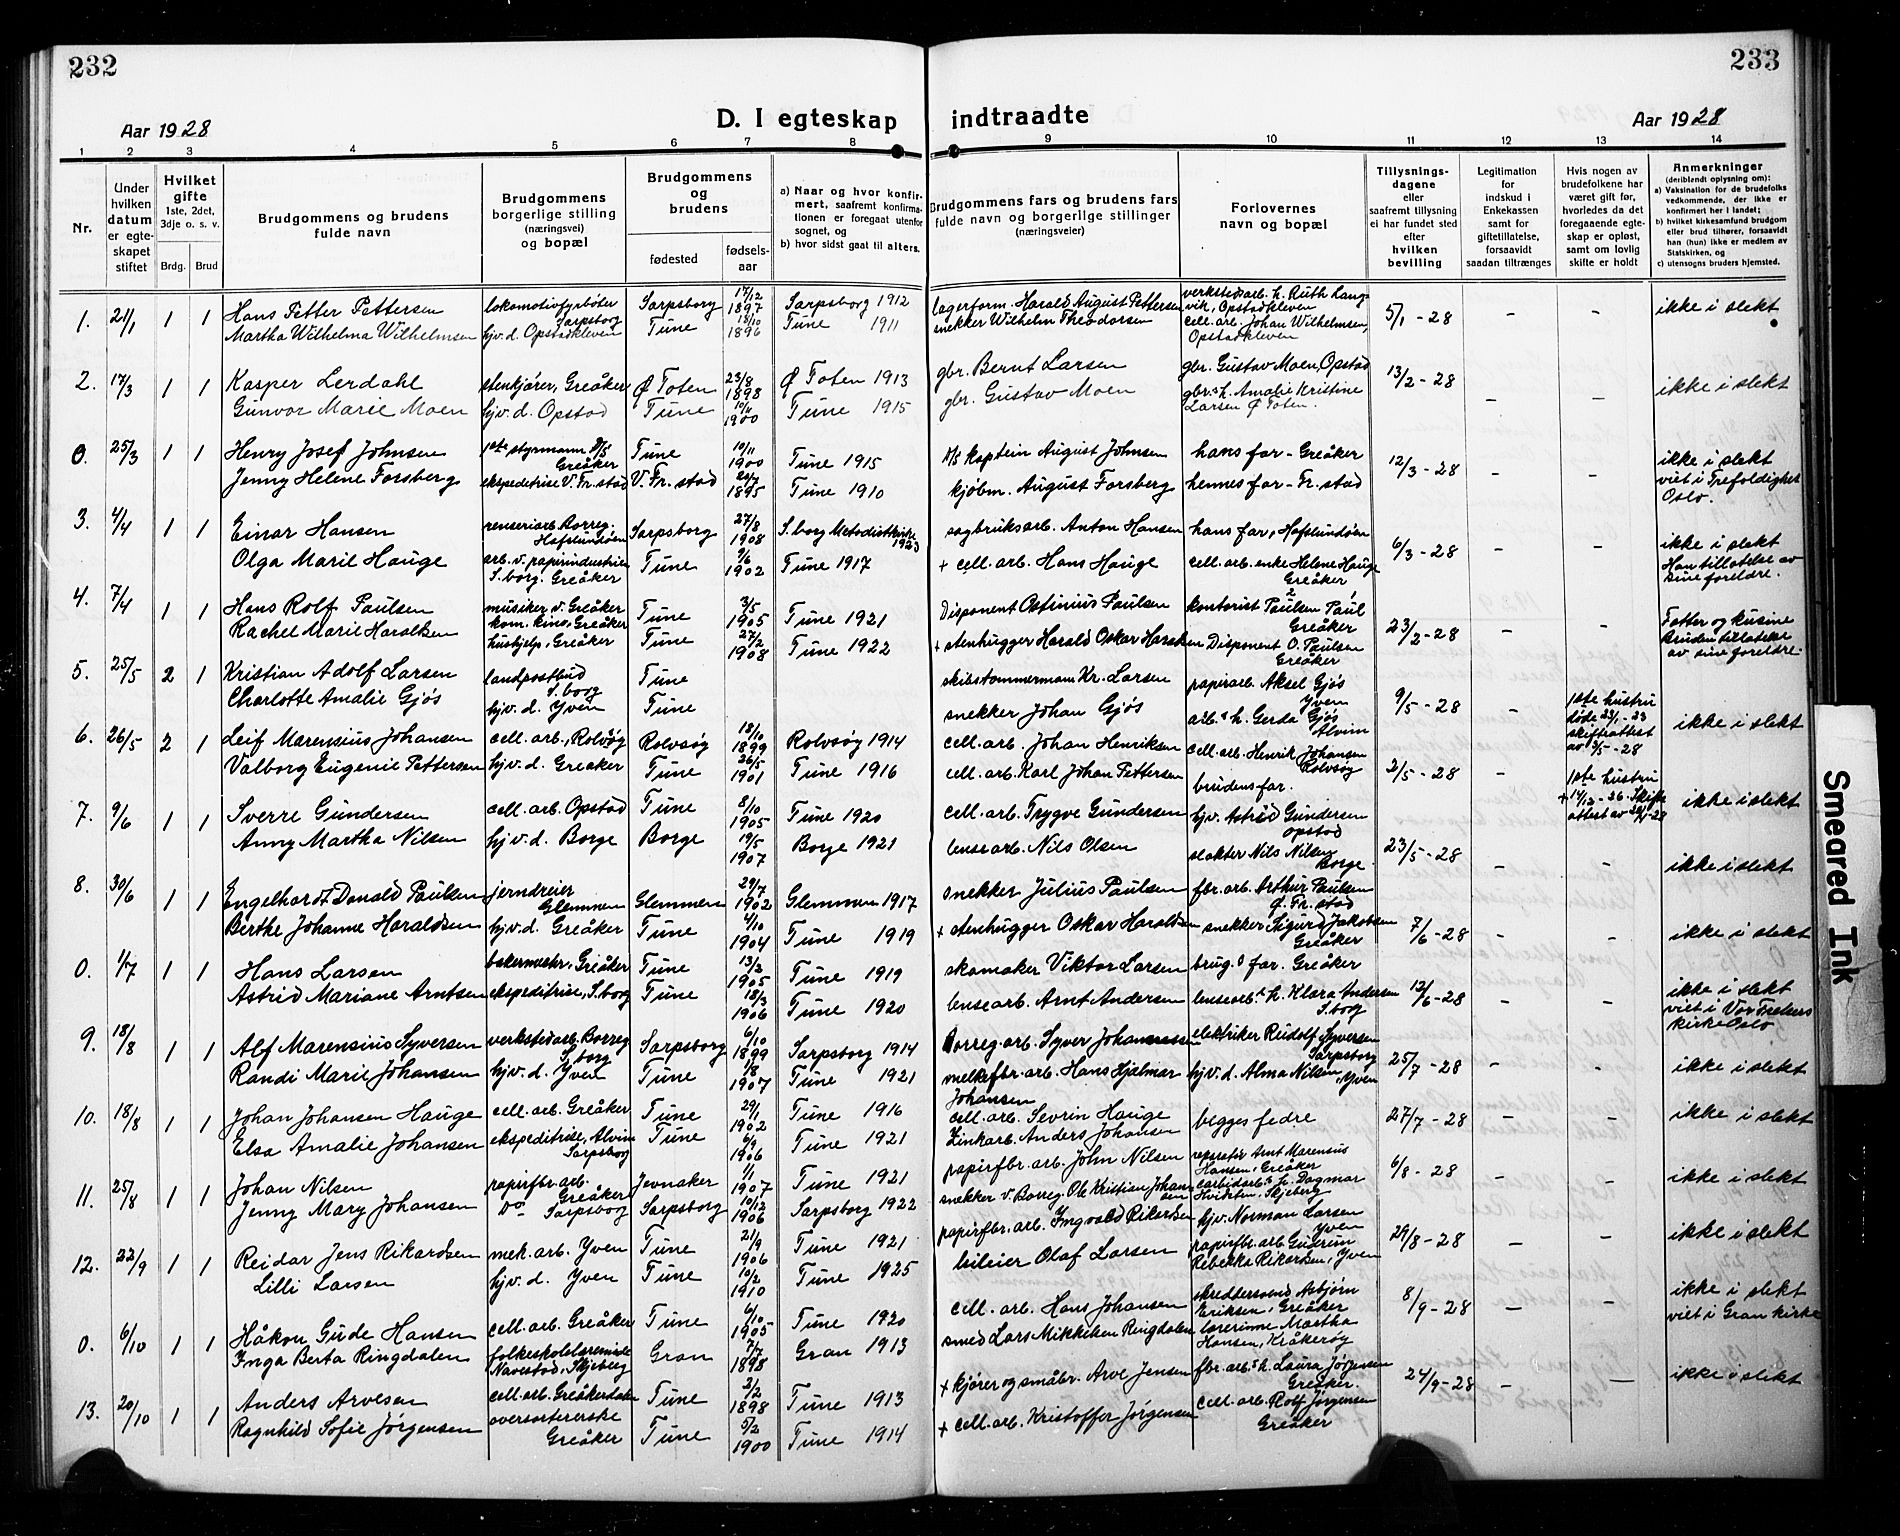 232
233
D. I egteskap indtraadte
Aar 1928
Aar 1928
1 2 3 4 5 6 7 8 9 10 11 12 13 14
Nr.
Under hvilken datum er egteskapet stiftet
Hvilket gifte
1ste, 2det, 3dje o. s. v.
Brdg. Brud
Brudgommens og brudens fulde navn
Brudgommens borgerlige stilling (næringsvei) og bopæl
Brudgommens og brudens
fødested
fødsels-aar
a) Naar og hvor konfirmert, saafremt konfirmationen er foregaat utenfor sognet, og
b) hvor sidst gaat til alters.
Brudgommens fars og brudens fars fulde navn og borgerlige stillinger (næringsveier)
Forlovernes navn og bopæl
Tillysningsdagene eller saafremt tillysning ei har fundet sted efter hvilken bevilling
Legitimation for indskud i Enkekassen samt for giftetillatelse, forsaavidt saadan tiltrænges
Hvis nogen av brudefolkene har været gift før, hvorledes da det foregaaende egteskap er opløst, samt om lovlig skifte er holdt
Anmerkninger
(deriblandt oplysning om):
a) Vaksination for de brudefolks vedkommende, der ikke er konfirmert her i landet;
b) hvilket kirkesamfund brudgom eller brud tilhører, forsaavidt han (hun) ikke er medlem av Statskirken, og
c) utensogns bruders hjemsted.
1. 21/1 1 1 Hans Petter Pettersen lokomotivfyrbøter Sarpsborg Sarpsborg 17/12 1897 Sarpsborg 1912 lagerform. Harald August Pettersen verkstedarb. h. Ruth Langvik, Opstadkleven 5/1 - 28 - - ikke i slekt
Martha Wilhelma Wilhelmsen hjv. d. Opstadkleven Tune 18/10 1896 Tune 1911 snekker Wilhelm Theodorsen cell. arb. Johan Wilhelmsen, Opstadkleven
2. 17/3 1 1 Kasper Lerdahl stenkjører, Greåker Ø Toten 23/8 1898 Ø Toten 1913 gbr. Bernt Larsen gbr. Gustav Moen, Opstad 13/2 - 28 - - ikke i slekt
Gunvor Marie Moen hjv. d. Opstad Tune 10/11 1900 Tune 1915 gbr. Gustav Moen gbr.s h. Amalie Kristine Larsen Ø Toten.
0. 25/3 1 1 Henry Josef Johnsen 1ste styrmann D/S Greåker Tune 10/11 1900 Tune 1915 D/S kaptein August Johnsen hans far - Greåker 12/3 - 28 - - ikke i slekt
Jenny Helene Forsberg ekspeditrise V. Fr. stad V. Fr. stad 24/7 1895 Tune 1910 kjøbm. August Forsberg hennes far - Fr. stad viet i Trefoldighet Oslo.
3. 4/4 1 1 Einar Hansen renseriarb. Borreg. Hafslundsøen Sarpsborg 27/8 1908 S. borg Metodistkirke 1923 sagbruksarb. Anton Hansen hans far, Hafslundsøen 6/3 - 28 - - ikke i slekt
Olga Marie Hauge arb. v. papirindustrien S. borg. Greåker Tune 9/6 1902 Tune 1917 + cell. arb. Hans Hauge cell. arb. enke Helene Hauge Greåker Han tillatelse av sine foreldre.
4. 7/4 1 1 Hans Rolf Paulsen musiker v. Greåker kom. kino, Greåker Tune 3/5 1905 Tune 1921 Disponent Ostinius Paulsen kontorist Paulsen Paul Greåker 23/2 - 28 - - Fetter og kusine
Rachel Marie Haraldsen hushjelp, Greåker Tune 27/2 1908 Tune 1922 + stenhugger Harald Oskar Haraldsen Disponent O. Paulsen Greåker Bruden tillatelse av sine foreldre.
5. 25/5 2 1 Kristian Adolf Larsen landpostbud S. borg Tune skibstømmermann Kr. Larsen papirarb. Aksel Gjøs Yven 9/5 - 28 - 1ste hustru døde 23/1 - 23 skifteattest av 3/5 - 28 ikke i slekt
Charlotte Amalie Gjøs hjv. d. Yven Tune snekker Johan Gjøs arb.s h. Gerda Gjøs Alvim
6. 26/5 2 1 Leif Marensius Johansen cell. arb., Rolvsøy Rolvsøy 18/10 1899 Rolvsøy 1914 cell. arb. Johan Henriksen cell. arb. Henrik Johansen Rolvsøy 2/5 - 28 - 1ste hustru + 14/12 - 26. Skifteattest av 24/4-28 ikke i slekt
Valborg Eugenie Pettersen hjv. d. Greåker Tune 26/5 1901 Tune 1916 cell. arb. Karl Johan Pettersen brudens far.
7. 9/6 1 1 Sverre Gundersen cell. arb. Opstad Tune 8/10 1905 Tune 1920 cell. arb. Trygve Gundersen hjv. Astrid Gundersen Opstad 23/5 - 28 - - ikke i slekt
Anny Martha Nilsen hj v. d. Borge Borge 19/5 1907 Borge 1921 lensearb. Nils Olsen slakter Nils Nilsen Borge.
8. 30/6 1 1 Engelhardt Donald Paulsen jerndreier Glemmen Glemmen 29/7 1902 Glemmen 1917 snekker Julius Paulsen fbr. arb. Arthur Paulsen Ø. Fr. stad 7/6 - 28 - - ikke i slekt
Berthe Johanne Haraldsen hjv. d. Greåker Tune 4/10 1904 Tune 1919 + stenhugger Oskar Haraldsen snekker Sigurd Jakobsen Greåker
0. 1/7 1 1 Hans Larsen bakermester, Greåker Tune 13/2 1905 Tune 1919 skomaker Viktor Larsen brug.s far. Greåker 12/6 - 28 - - ikke i slekt
Astrid Mariane Arntsen ekspeditrise, S. borg Tune 18/3 1906 Tune 1920 lensearb. Arnt Andersen lensearb.s h. Klara Andersen S. borg viet i Vor Frelsers kirke Oslo
9. 18/8 1 1 Alf Marensius Syversen verkstedarb. Borreg. S. borg Sarpsborg 6/10 1899 Sarpsborg 1914 Borreg. arb. Syver Johannessen elektriker Rudolf Syversen Sarpsborg 25/7 - 28 - - ikke i slekt
Randi Marie Johansen hjv. d. Yven Tune 1/8 1907 Tune 1921 melkefbr. arb. Hans Hjalmar Johansen hj. v. d. Alma Nilsen, Yven
10. 18/8 1 1 Johan Johansen Hauge cell. arb. Greåker Tune 29/1 1902 Tune 1916 cell. arb. Sevrin Hauge begges fedre 27/7 - 28 - - ikke i slekt
Elsa Amalie Johansen ekspeditrise, Alvim Sarpsborg Tune 6/9 1906 Tune 1921 Zinkarb. Anders Johansen
11. 25/8 1 1 Johan Nilsen papirfbr. arb. Greåker Jevnaker 1/1 1907 Tune 1921 papirfbr. arb. John Nilsen Arnt Marensius Hansen, Greåker 6/8 - 28 - - ikke i slekt
Jenny Mary Johansen Do Sarpsborg Sarpsborg 10/12 1906 Sarpsborg 1922 snekker v. Borreg. Ole Kristian Johansen carbidarb.s h. Dagmar Hvidsten, Skjeberg
12. 22/9 1 1 Reidar Jens Rikardsen mek. arb. Yven Tune 21/9 1906 Tune 1921 papirfbr. arb. Ingvald Rikardsen hjv. Norman Larsen Yven 29/8 - 28 - - ikke i slekt
Lilli Larsen hjv. d. Yven Tune 10/2 1910 Tune 1925 bileier Olaf Larsen papirfbr. arb. Gudrun Rebekka Rikardsen, Yven
0. 6/10 1 1 Håkon Gude Hansen cell. arb. Greåker Tune 6/10 1905 Tune 1920 cell. arb. Hans Johansen skreddersvend Asbjørn Eriksen, Greåker 8/9 - 28 - - ikke i slekt
Inga Berta Ringdalen folkeskolelærerinde Navestad, Skjeberg Gran 7/7 1898 Gran 1913 smed Lars Mikkelsen Ringdalen lærerinne Martha Hansen, Kråkerøy viet i Gran kirke
13. 20/10 1 1 Anders Arvesen cell. arb. Greåkerdalen Tune 2/2 1898 Tune 1913 + kjører og småbr. Arve Jensen fbr. arb.s h. Laura Jørgensen Greåker. 24/9 - 28 - - ikke i slekt
Ragnhild Sofie Jørgensen oversorterske Greåker Tune 5/2 1900 Tune 1914 + cell. arb. Kristoffer Jørgensen cell. arb. Rolf Jørgensen Greåker
Smeared Ink